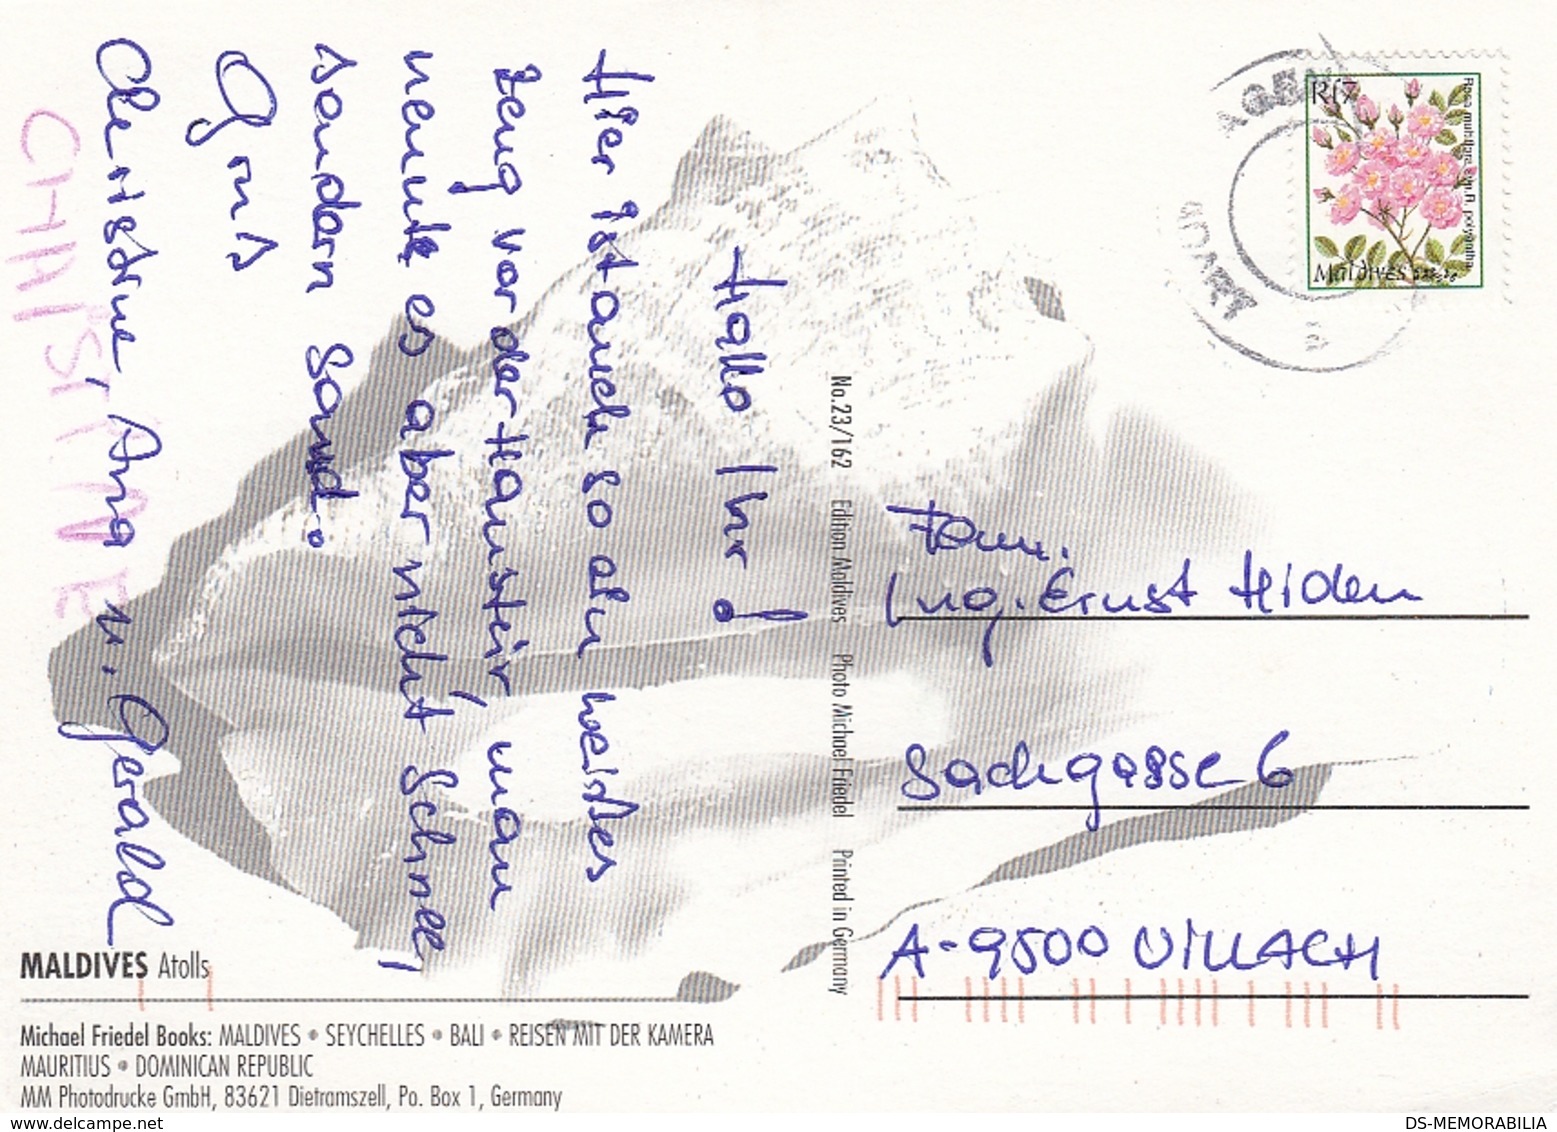 Hallo Ihr!
Hier ist auch so ein weißes
Zeug vor der Haustür, man
nennt es aber nicht Schnee,
sondern Sand.
Gruß
Christine, Anja u. Gerald
CHRISTINE
No.23/162 Edition Maldives Photo Michael Friedel Printed in Germany
Rf7
Rosa multiflora
Maldives
Fam.
Ing. Ernst Hiden
Sachgasse 6
A-9500 VILLACH
MALDIVES Atolls
Michael Friedel Books: MALDIVES • SEYCHELLES • BALI • REISEN MIT DER KAMERA
MAURITIUS • DOMINICAN REPUBLIC
MM Photodrucke GmbH, 83621 Dietramszell, Po. Box 1, Germany
DS-MEMORABILIA